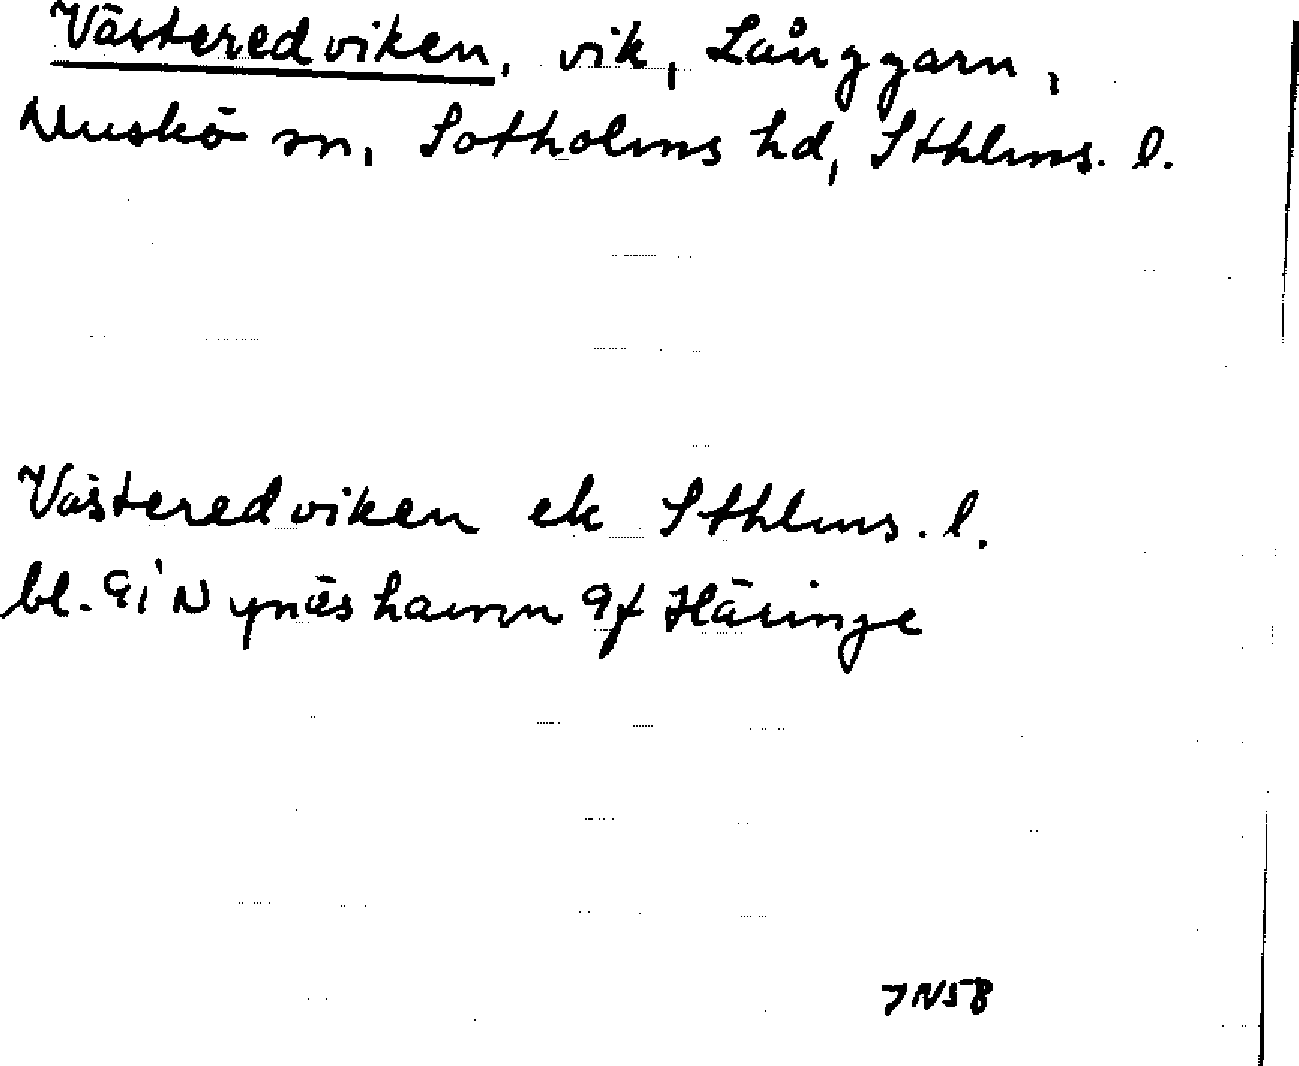 Västeredviken, vik, Långgarn,
Muskö sn, Sotholms hd, Sthlms. l.
Västeredviken ek Sthlms. l.
bl. 9i Nynäshamn 9f Häringe
JNSB